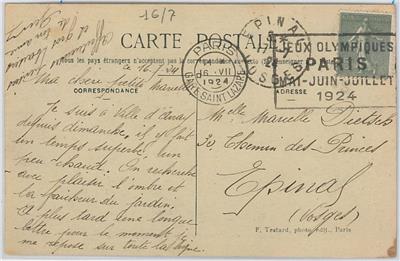 16/7
CARTE POSTALE
Tous les pays étrangers n'acceptent pas la correspondance au recto
CORRESPONDANCE
ADRESSE
PARIS
16-VII
1924
GARE SAINT LAZARE
EPINAL
VOSGES
JEUX OLYMPIQUES
PARIS
MAI-JUIN-JUILLET
1924
16/7/24
Ma chère petite Marcelle
Je suis à Ville d'Avray
depuis dimanche, il y fait
un temps superbe, un
peu chaud. On recherche
avec plaisir l'ombre et
la fraîcheur du jardin.
Et plus tard une longue
lettre pour le moment je
me repose sur toute la ligne.
Melle Marcelle Dietsch
30, Chemin des Princes
Epinal
(Vosges)
F. Testard, photo. édit., Paris